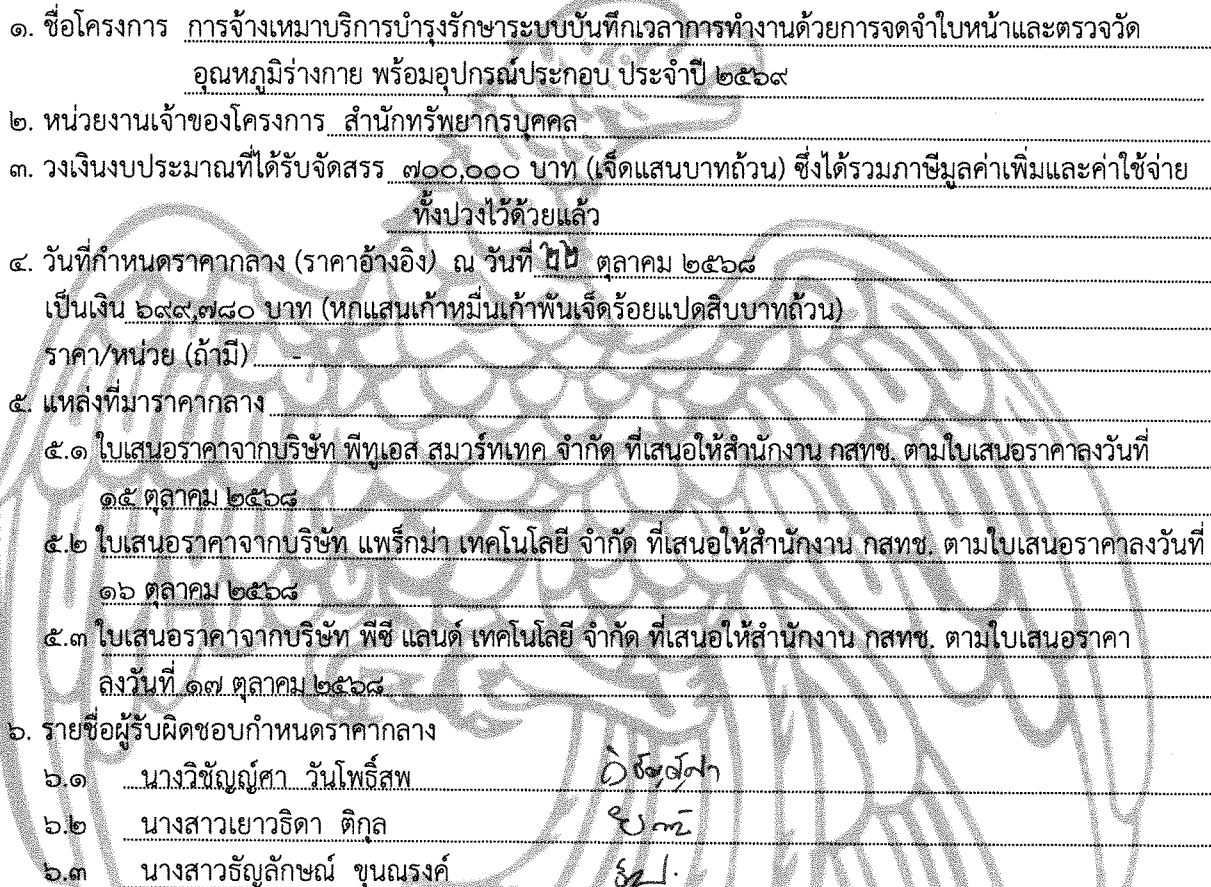 ๑. ชื่อโครงการ การจ้างเหมาบริการบำรุงรักษาระบบบันทึกเวลาการทำงานด้วยการจดจำใบหน้าและตรวจวัด
อุณหภูมิร่างกาย พร้อมอุปกรณ์ประกอบ ประจำปี ๒๕๖๙
๒. หน่วยงานเจ้าของโครงการ สำนักทรัพยากรบุคคล
๓. วงเงินงบประมาณที่ได้รับจัดสรร ๗๐๐,๐๐๐ บาท (เจ็ดแสนบาทถ้วน) ซึ่งได้รวมภาษีมูลค่าเพิ่มและค่าใช้จ่าย
ทั้งปวงไว้ด้วยแล้ว
๔. วันที่กำหนดราคากลาง (ราคาอ้างอิง) ณ วันที่ ๒๒ ตุลาคม ๒๕๖๘
เป็นเงิน ๖๙๙,๗๘๐ บาท (หกแสนเก้าหมื่นเก้าพันเจ็ดร้อยแปดสิบบาทถ้วน)
ราคา/หน่วย (ถ้ามี) -
๕. แหล่งที่มาราคากลาง
๕.๑ ใบเสนอราคาจากบริษัท พีทูเอส สมาร์ทเทค จำกัด ที่เสนอให้สำนักงาน กสทช. ตามใบเสนอราคาลงวันที่
๑๕ ตุลาคม ๒๕๖๘
๕.๒ ใบเสนอราคาจากบริษัท แพร็กม่า เทคโนโลยี จำกัด ที่เสนอให้สำนักงาน กสทช. ตามใบเสนอราคาลงวันที่
๑๖ ตุลาคม ๒๕๖๘
๕.๓ ใบเสนอราคาจากบริษัท พีซี แลนด์ เทคโนโลยี จำกัด ที่เสนอให้สำนักงาน กสทช. ตามใบเสนอราคา
ลงวันที่ ๑๗ ตุลาคม ๒๕๖๘
๖. รายชื่อผู้รับผิดชอบกำหนดราคากลาง
๖.๑ นางวิชัญญ์ศา วันโพธิ์สพ
๖.๒ นางสาวเยาวธิดา ติกุล
๖.๓ นางสาวธัญลักษณ์ ขุนณรงค์